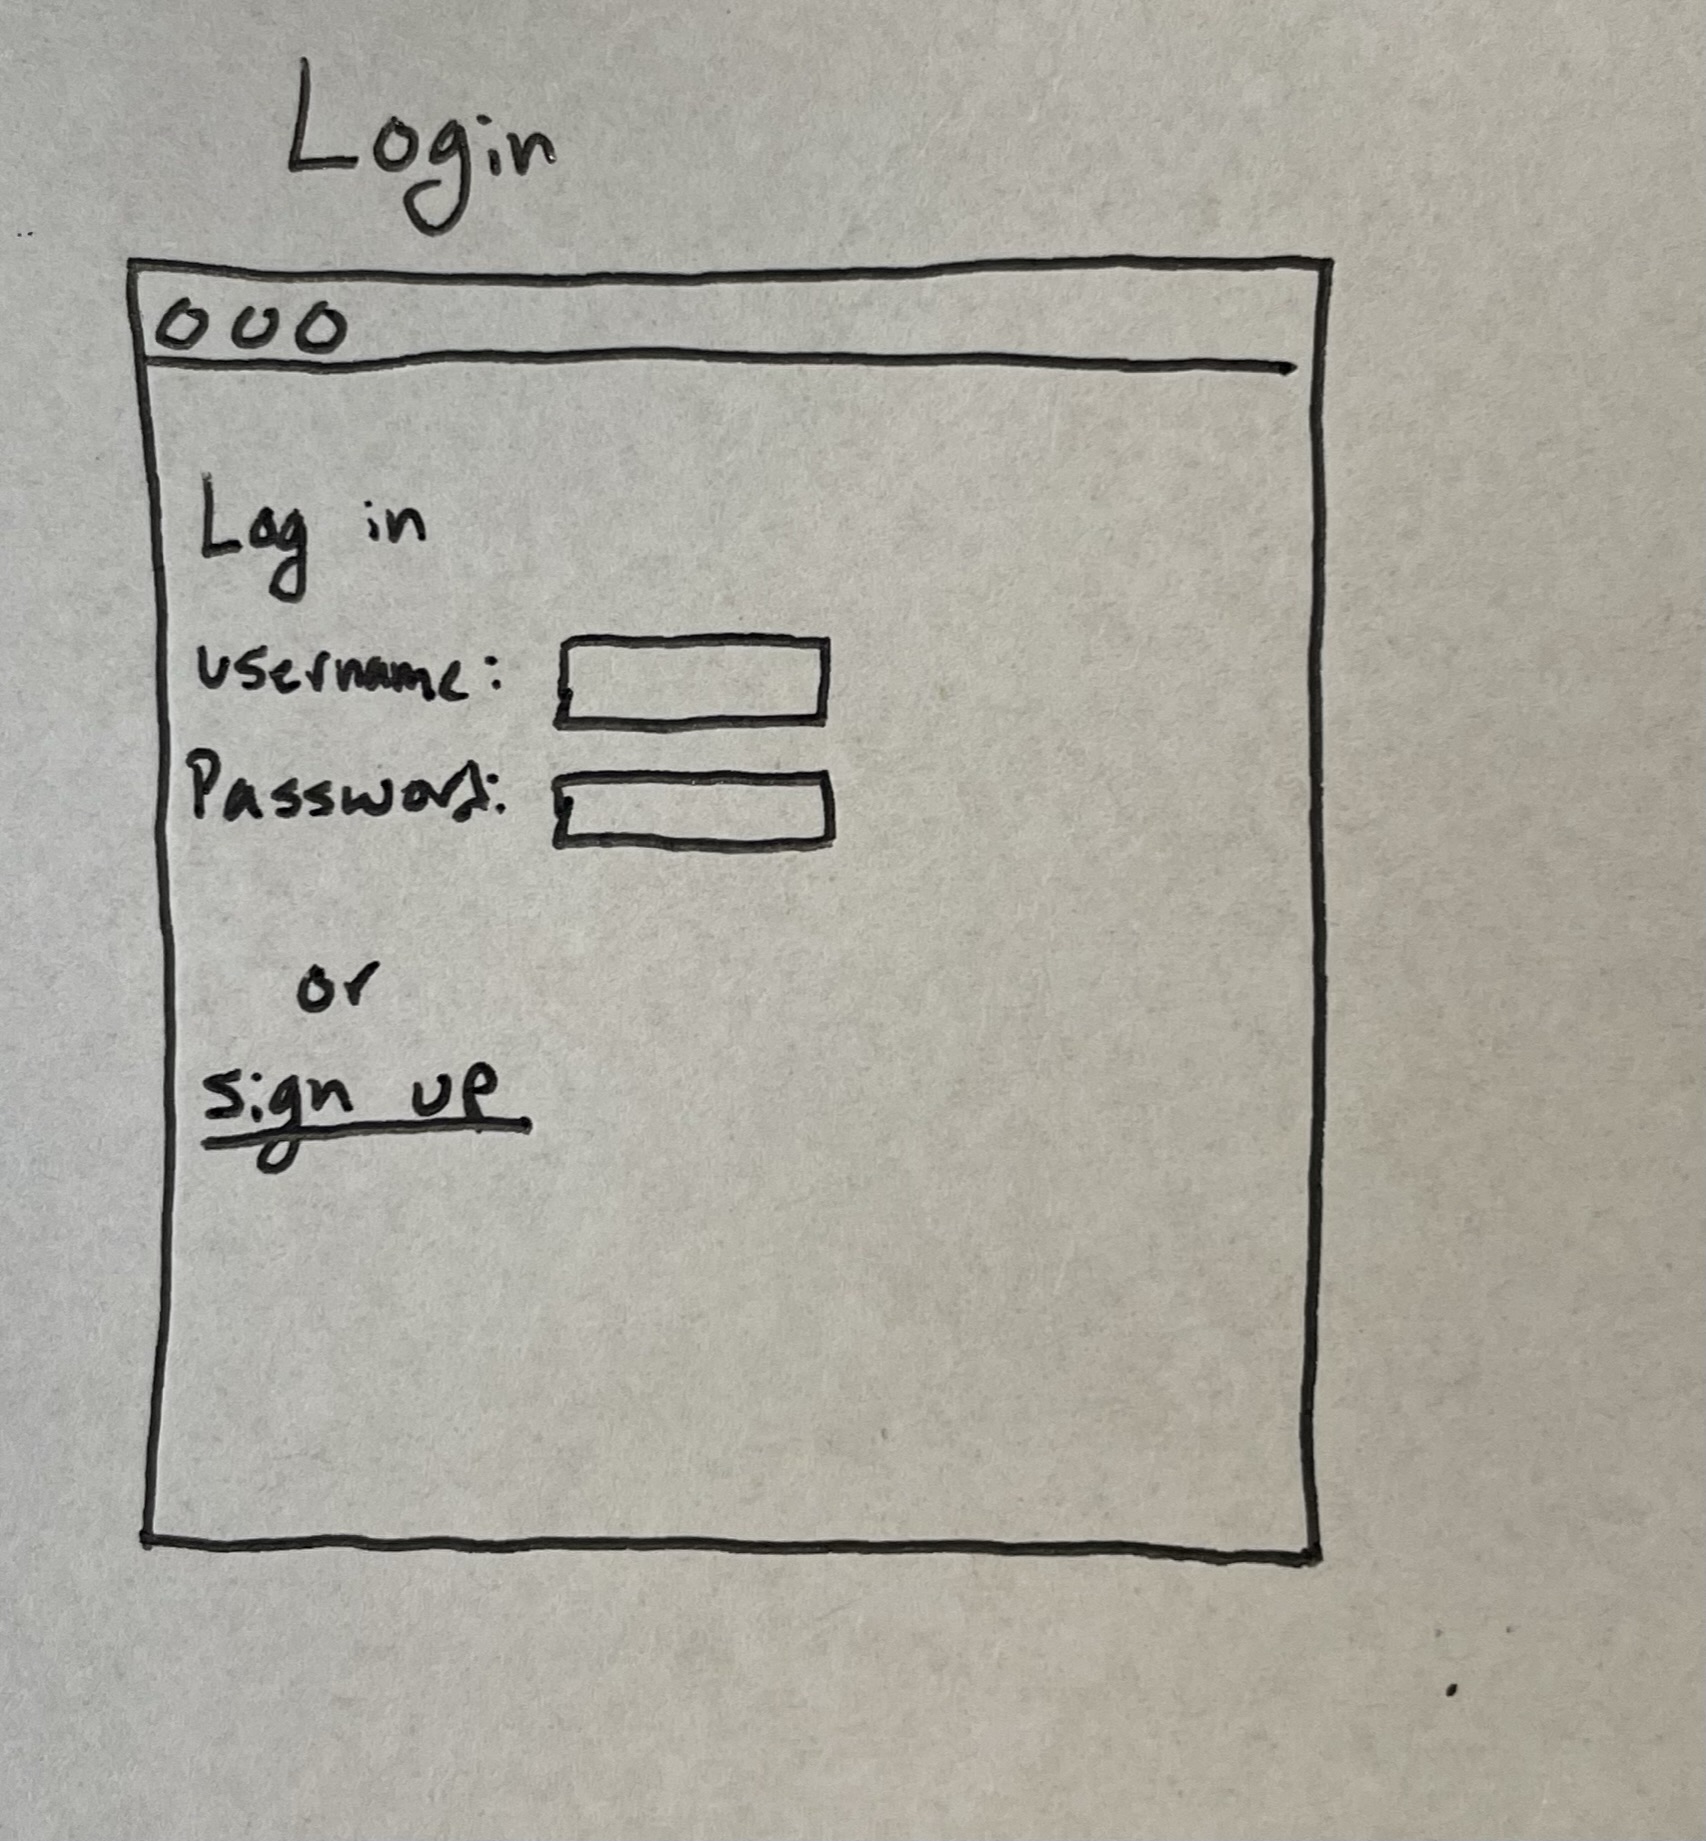 Login
Log in
username:
Password:
or
sign up